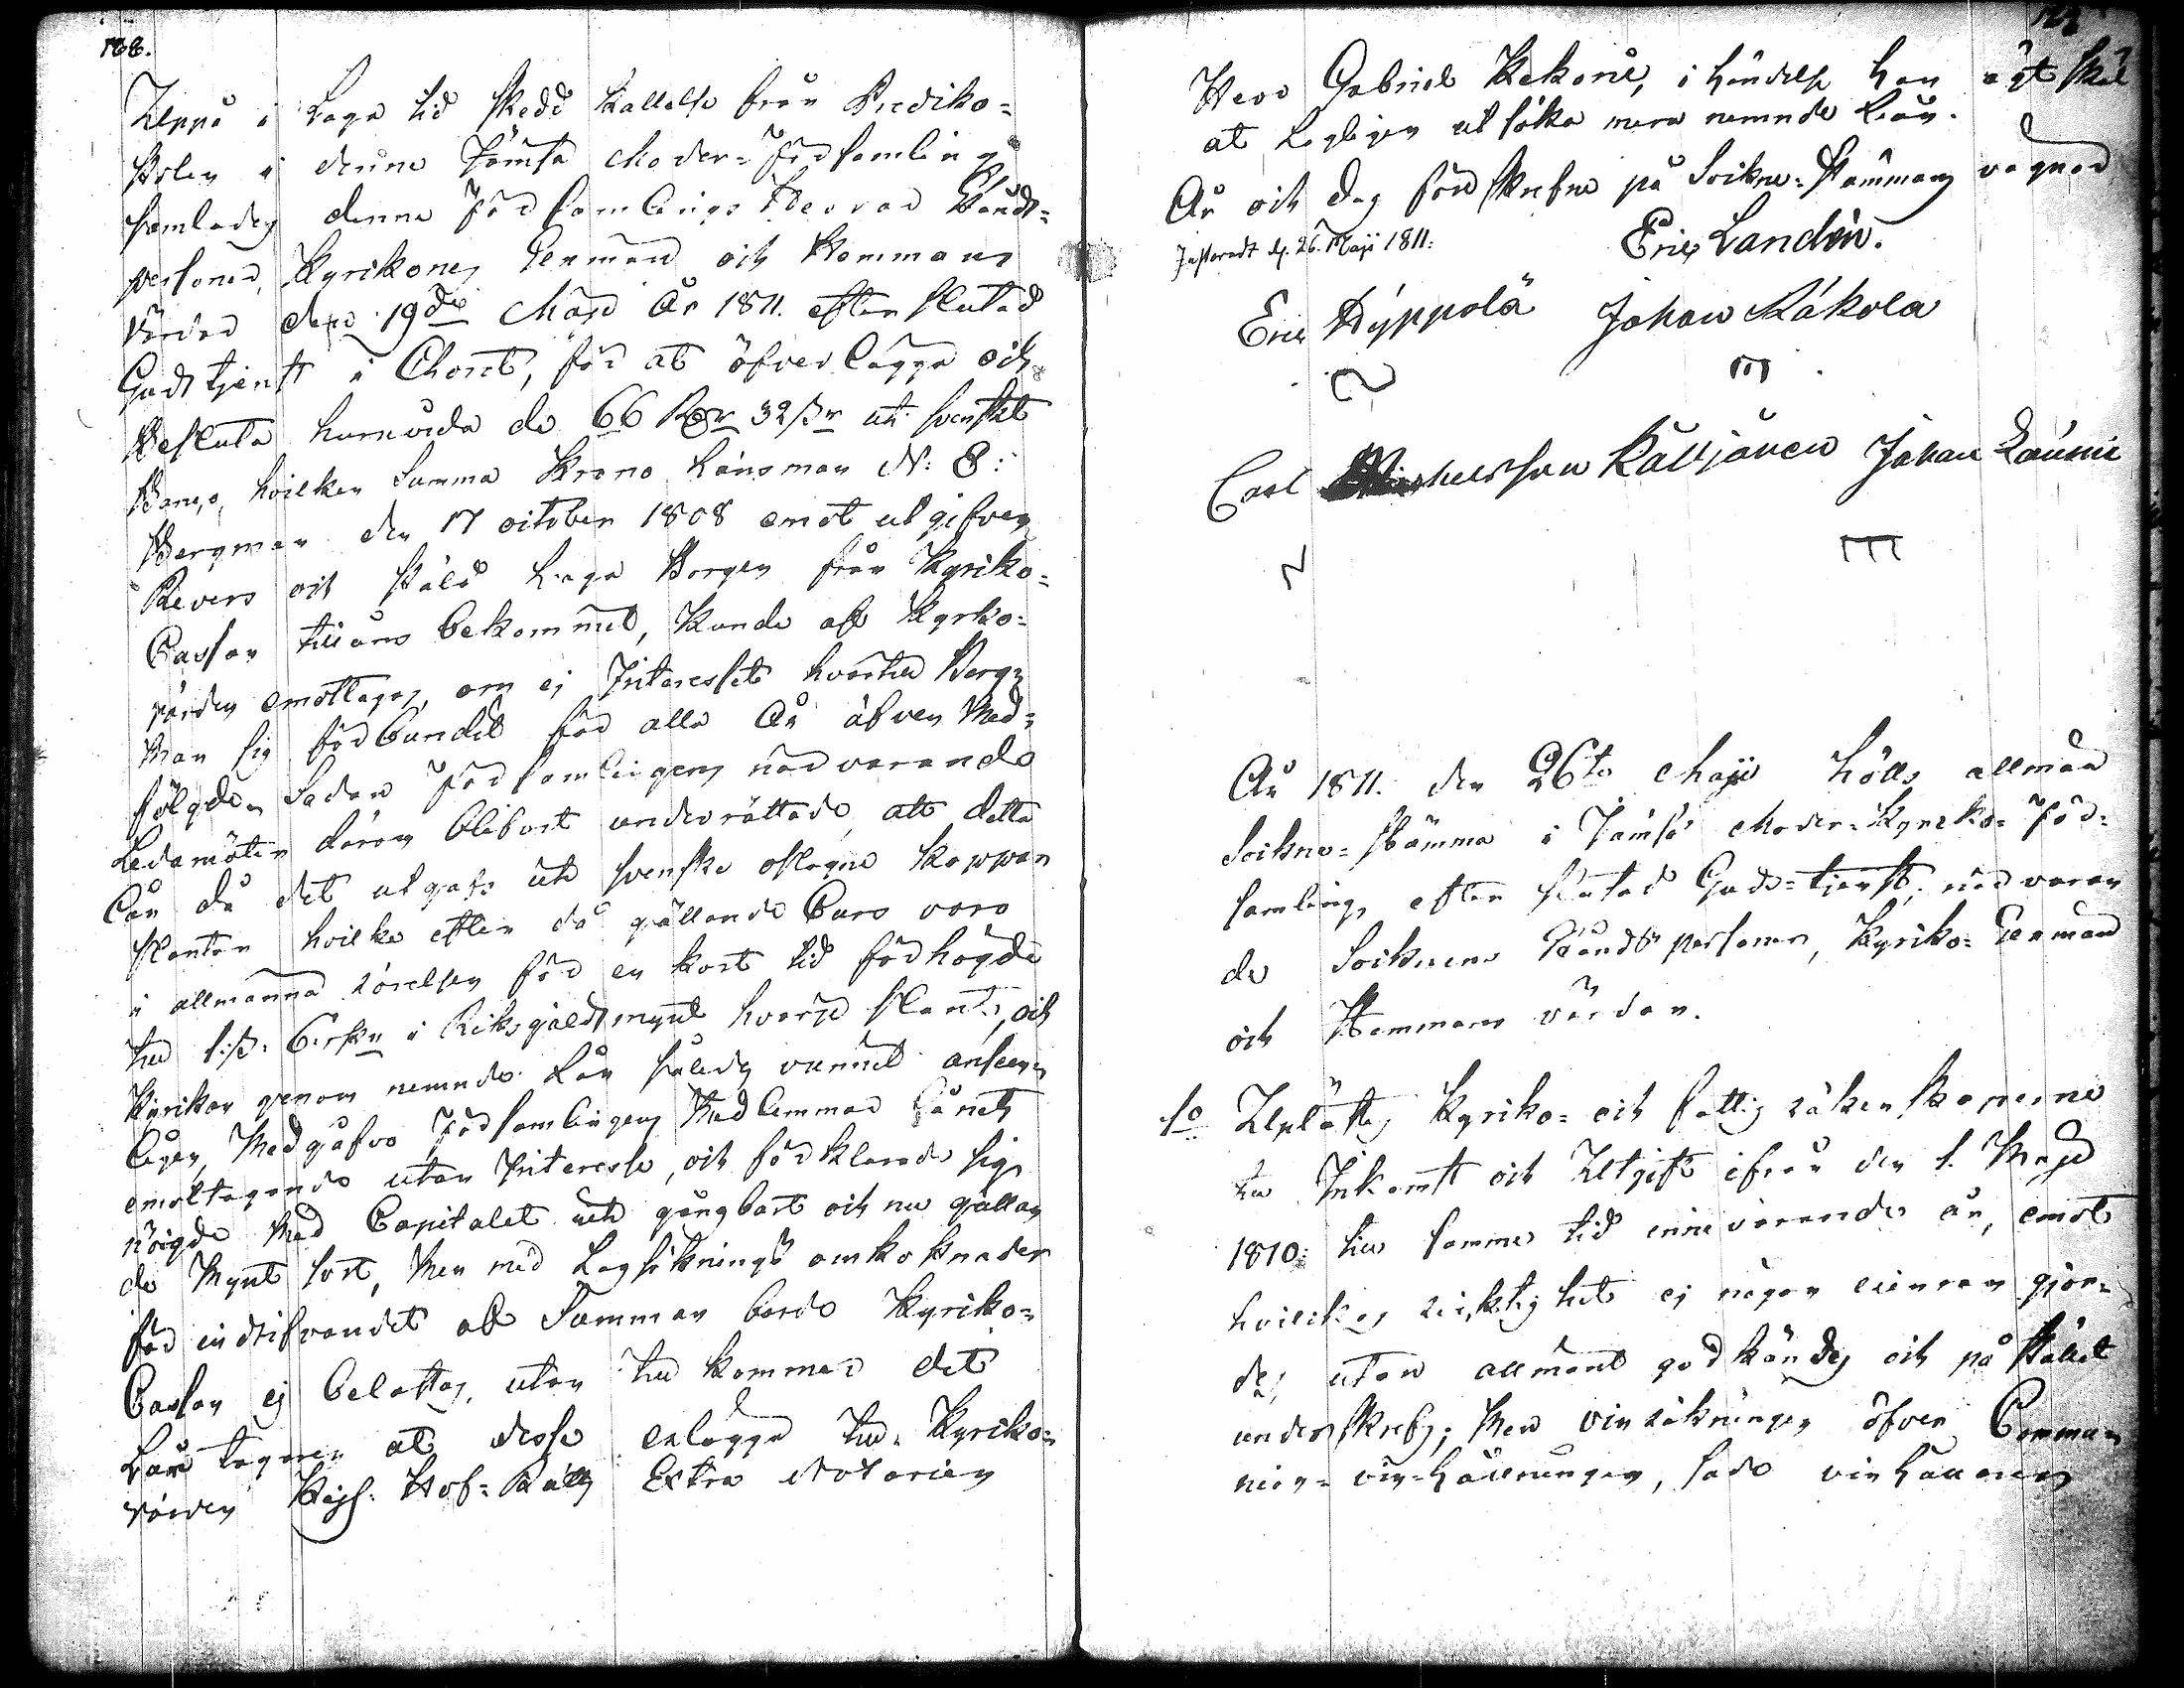 168.
Uppå i Laga tid skedd kallelse från Prediko-
stolen i denna Jämsä Moder-Församling
samlades denna Församlings Herrar Stånds-
personer, Kyrkones Sexmän och Hemmans
värdar den 19de Mars År 1811. efter slutad
Gudstjenst i Choret, för at öfverlägga och
besluta huruvida de 66 Rdr 32 sk uti svenskt
Banco, hvilken Summa Krono Länsman N: B:
Bergman den 17 october 1808 emot utgifven
Revers och stäld Laga Borgen från Kyriko-
Cassan till låns bekommit, kunde af Kyrko-
värden emottagas, om ej Interesset hvartil Berg-
man sig förbundit för alla År äfven med-
fölgde. Sedan Församlingens närvarande
Ledamöter härom blifvit underrättade, att detta
Lån då det utgafs uti svenska oslagne koppar
slantar hvilka efter då gällande Curs voro
i allmänna rörelsen för en kort tid förhögde
till i Riksgäldsmynt hvarje slant, och
Kyrikan genom nemnde Lån således vunnit ansen-
ligen, medgåfvo Församlingens medlemmar Lånets
emottagande utan Interesse, och förklarade sig
nöigde med Capitalet uti gångbart och nu gällan-
de mynt sort, men med Lagsöknings omkostnader
för indrifvandet af Summan borde Kyriko-
Cassan ej belastas, utan tillkommer det
Låntagaren at desse erlägga till Kyriko-
värden Kejs: Hof-Rätts Extra Notarien
Herr Gabriel Kekoni, i händelse han ägt skäl
at Lagligen utsöka mera nemnde Lån.
År och dag förr skrefne på Sockne-Stämmans vägnar
Justeradt d. 26. Maji 1811.
Eric Landén.
Eric Hyppölä Johan Käkolä
Carl Kälvjänen Johan Launis
År 1811. den 26te Maji hölls allmän
Sockne-Stämma i Jämsä Moder-Kyrko-För-
samling, efter slutad Guds-tjenst, närvaran
de Socknens Ståndspersoner, Kyriko-Sexmän
och Hemmans värdar.
1o Uplästes Kyriko- och fattig räkenskaperne
till Inkomst och Utgift ifrån den 1. Maji
1810: till samma tid innevarande år, emot
hvilkas ricktighet ej någon einran gjor-
des, utan allmänt godkändes och på stället
underskrefs; men vin räkningen öfver Commu-
nion-vin-hållningen, sade vinhållaren